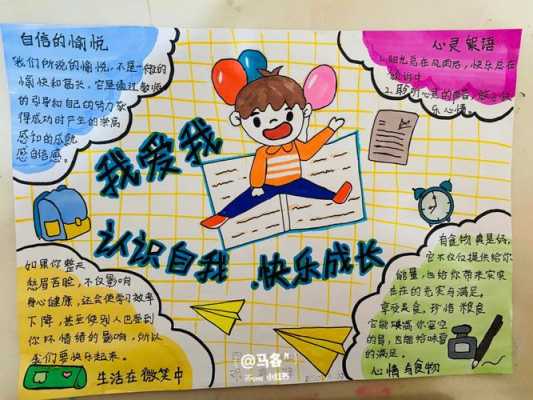 自信的愉悦
我们所说的愉悦,不是一般的
愉快和喜乐,它是通过教师
的引导和自己的努力获
得成功时产生的
感和的成就
感自信感。
心灵絮语
1.阳光总在风雨后,快乐总在
2.聆听心灵的声音,
乐心情
我爱我
认识自我.快乐成长
如果你整天
愁眉苦脸,不仅影响
身心健康,还会使学习效率
下降,甚至使别人也受到
你坏情绪的影响,所以
我们要快乐起来。
生活在微笑中
有食物真是好,
它不仅仅提供给你
能量,也给你带来实实
在在的充实与满足。
享受美食,珍惜粮食
它能填满你空空
的胃,也能给味蕾
的满足。
心情与食物
@马各
小红书